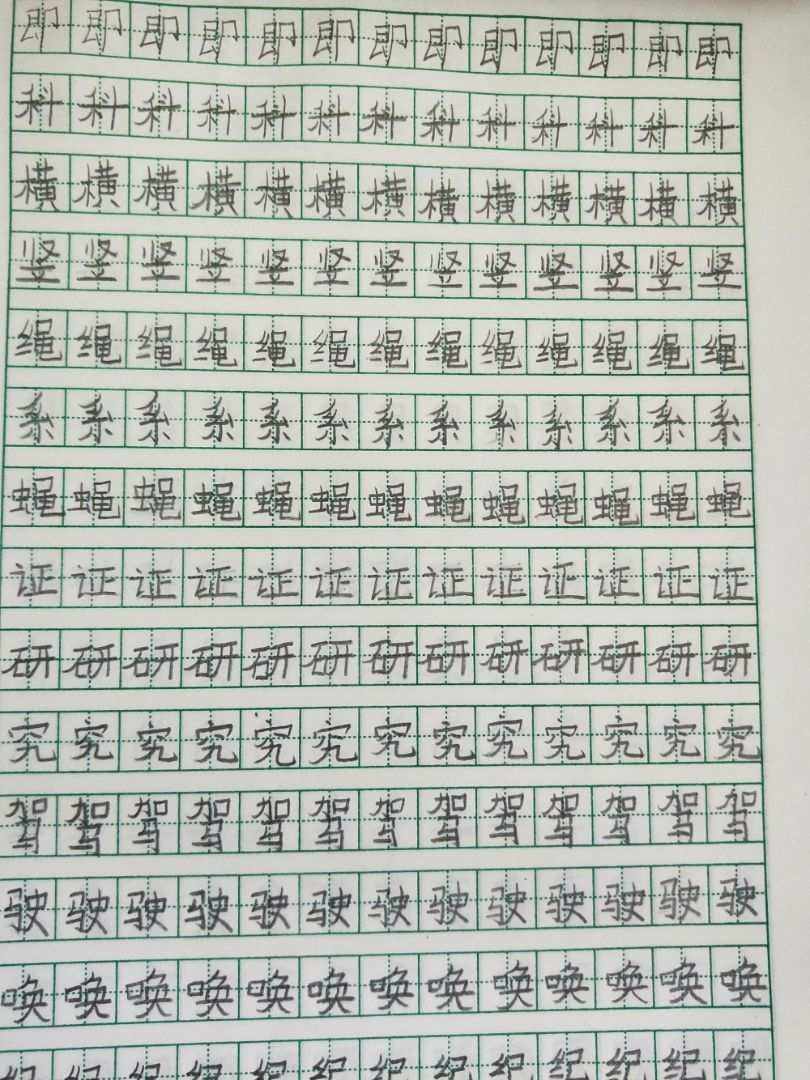 即即即即即即即即即即即即即
科科科科科科科科科科科科科
横横横横横横横横横横横横横
竖竖竖竖竖竖竖竖竖竖竖竖竖
绳绳绳绳绳绳绳绳绳绳绳绳绳
系系系系系系系系系系系系系
蝇蝇蝇蝇蝇蝇蝇蝇蝇蝇蝇蝇蝇
证证证证证证证证证证证证证
研研研研研研研研研研研研研
究究究究究究究究究究究究究
驾驾驾驾驾驾驾驾驾驾驾驾驾
驶驶驶驶驶驶驶驶驶驶驶驶驶
唤唤唤唤唤唤唤唤唤唤唤唤唤
纪纪纪纪纪纪纪纪纪纪纪纪纪